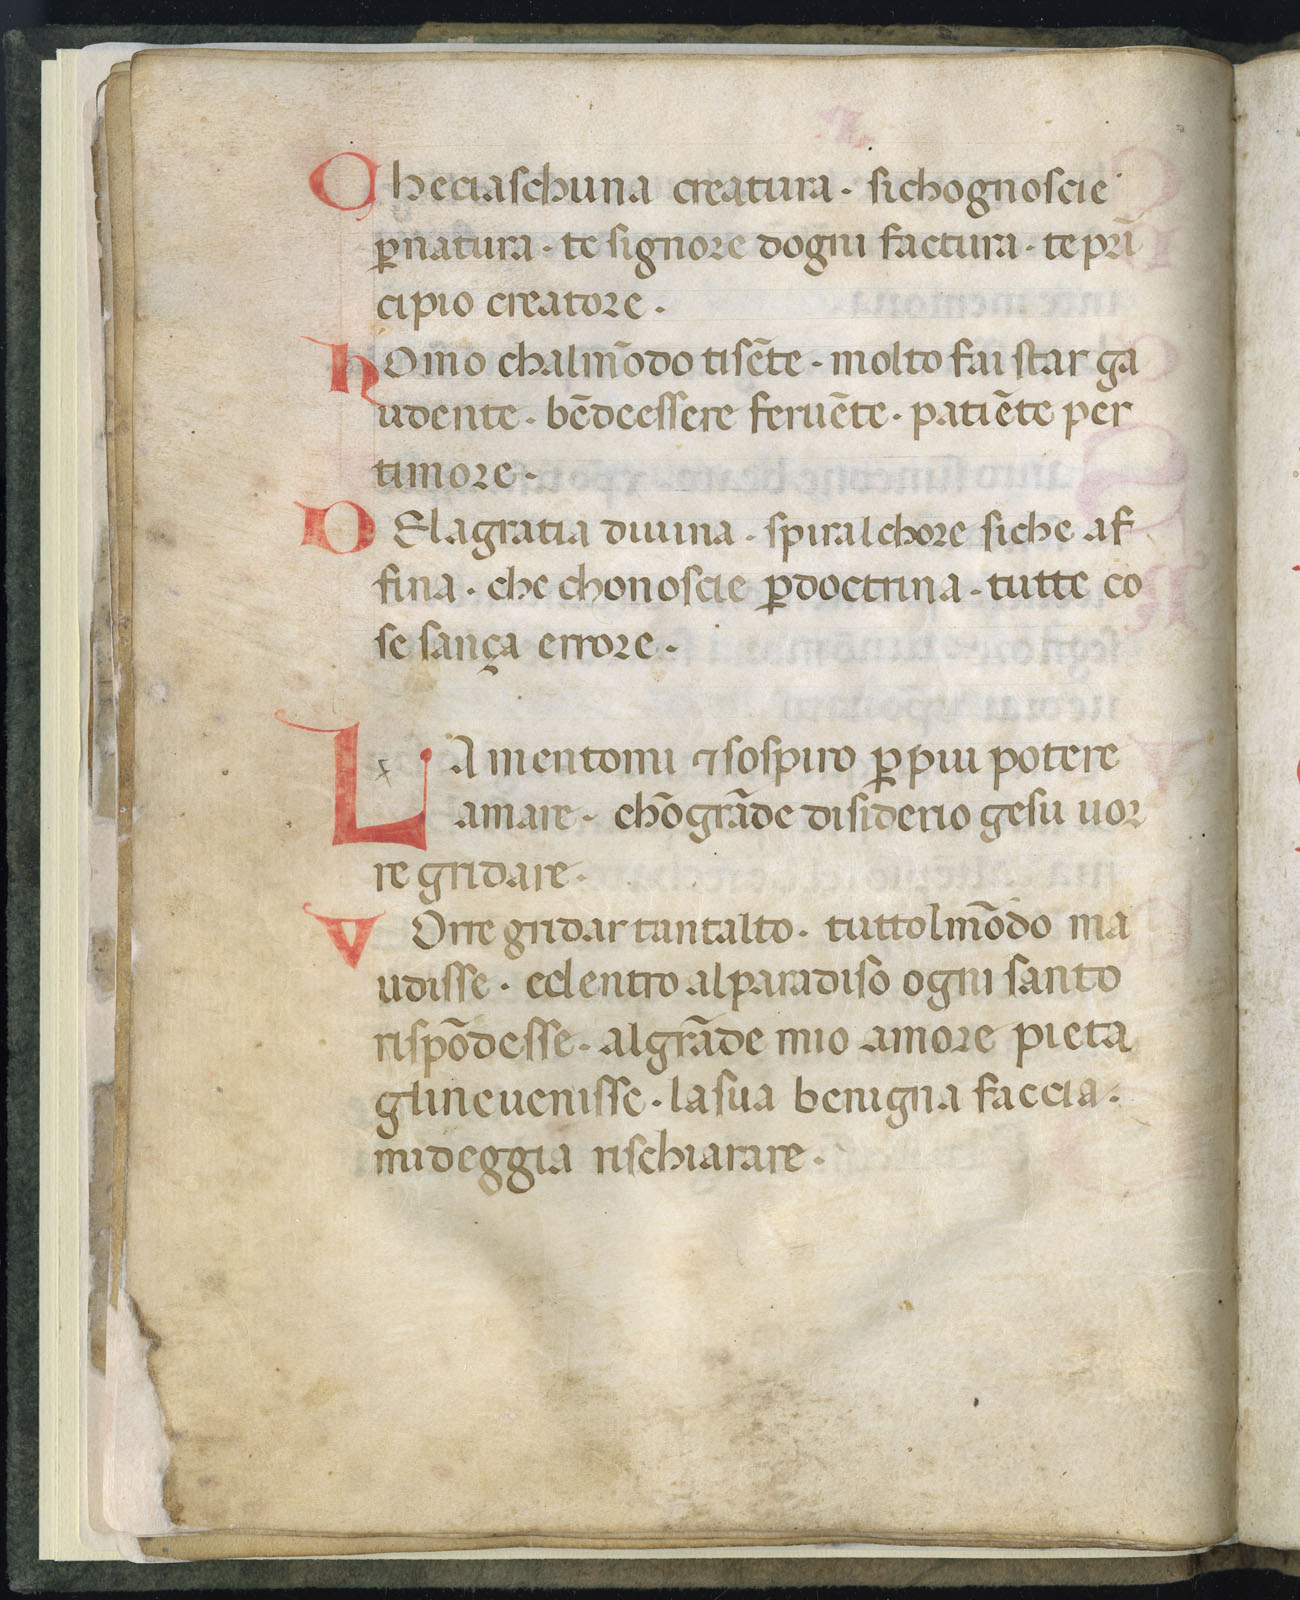 Checiaschuna creatura · sichognoscie
ꝑnatura · te signore dogni factura · teprī
cipio creatore ·
hOmo chalmōdo tisēte · molto fai star ga
udente · bēdeessere feruēte · patiēte per
timore ·
DElagratia diuina · spiralchore siche af
fina · che chonoscie ꝑdoctrina · tutte co
se sança errore ·
LAmentomi ⁊sospiro ꝑpiu potere
amare · chōgrāde disiderio gesu uor
re gridare ·
VOrre gridar tantalto · tuttolmōdo ma
udisse · edentro alparadiso ogni santo
rispōdesse · algrāde mio amore pieta
glineuenisse · lasua benigna faccia ·
mideggia rischiarare ·